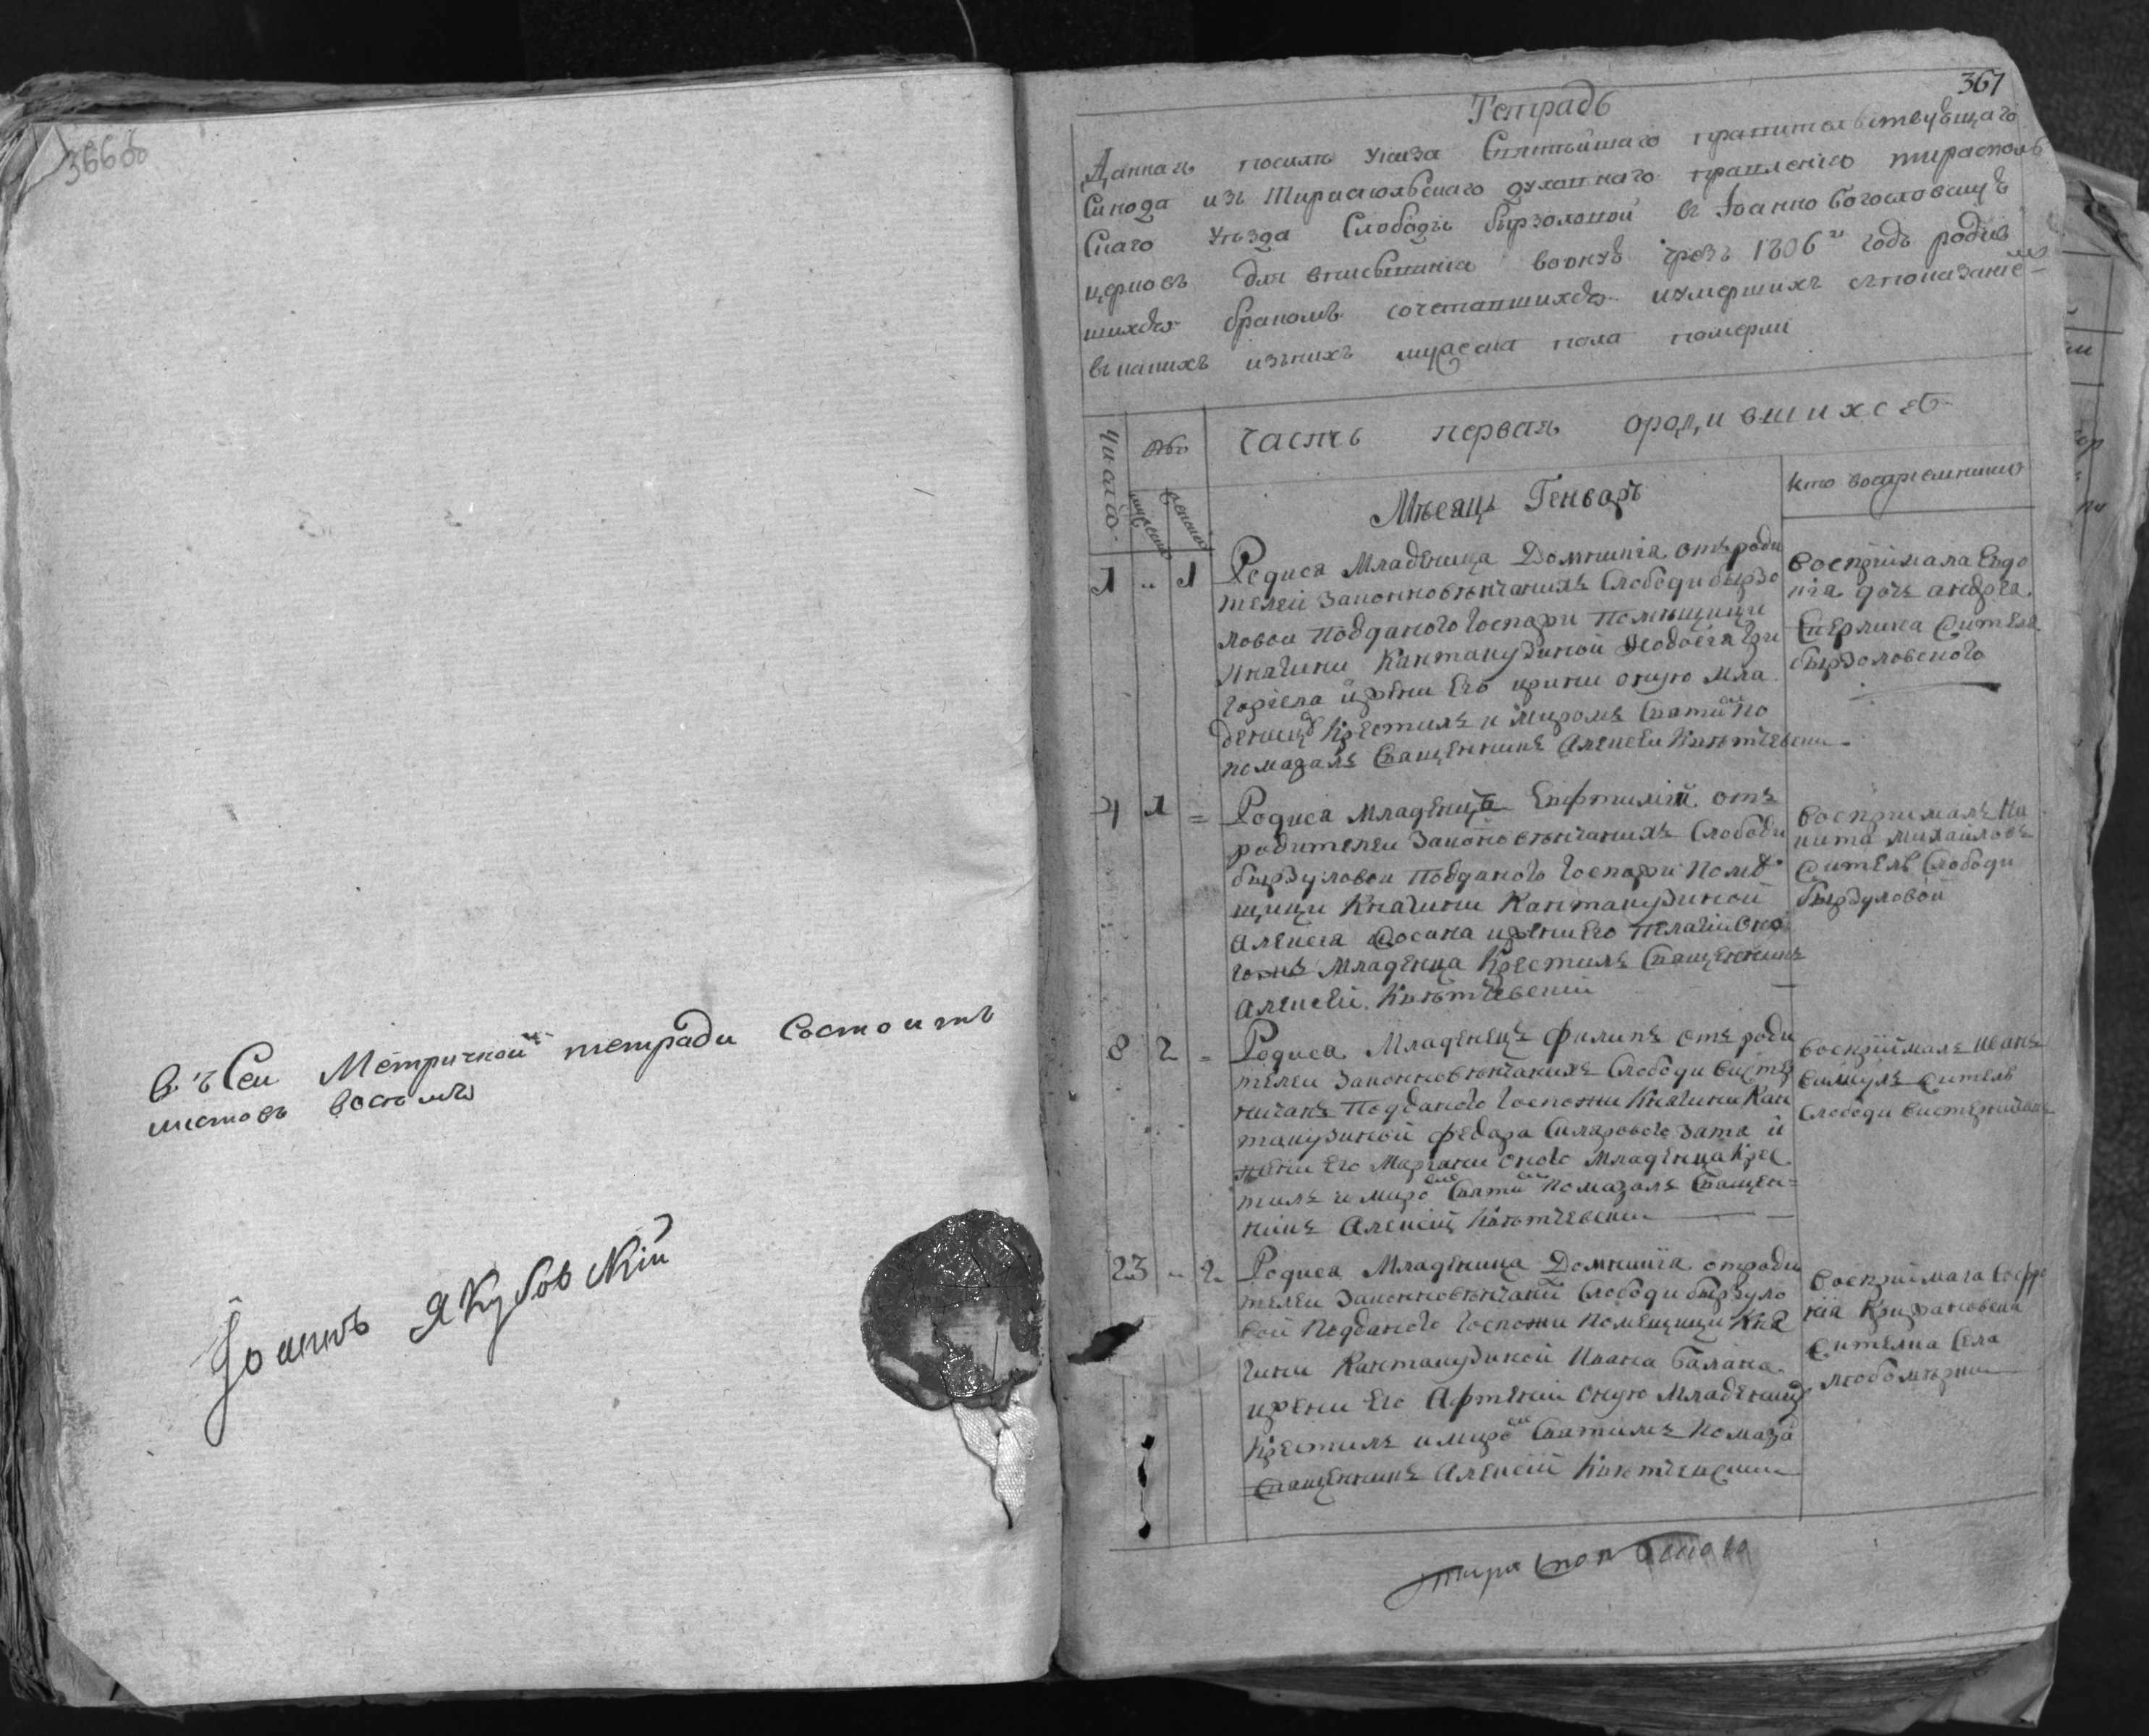 366об
В ъ Сеи Метрической тетради Состоитъ
листовъ восемъ
Іоаннъ Якубовскій
367
Тетрадь
Данная посиле Указа Святейшаго правителствующаго
Синода изъ Тираспольскаго духовнаго правления тирасполь
скаго Уезда Слободы бырзоловой въ Іоанно Богословскую
церковь для вписывания воону чрезъ 1806 годъ родив
шихся бракомъ сочетавшихся иумершихъ спюказание
въ какихъ изънихъ мужеска пола померли
Число
мужеска
женска
часть первая ородившихся
Месяцъ Генварь
кто воспріемники
1 .. 1
Родися Младеница Домникія отъ роди
телей Законновѣнчаних Слободи бырзо
ловои Подданого Госпажи Помѣщици
Княгини Кантакузиной
и жени Его ирини оную мла
деницу Крестилъ и миромъ Святим по
помазалъ Священникъ Алексеи
воспріимала Евдо
кія дочь андрея
жителя
бырзоловского
4 1 =
Родися Младенецъ Евфтимій отъ
родителеи Законовѣнчанихъ Слободи
бырзуловои Подданого Госпажи Помѣ
щици Княгини Кантакузиной
Алексея и жени Его Пелагіи оно
го Младенца Крестилъ Священникъ
Алексей
воспріималъ Ни
кита Михайловъ
житель Слободи
бырзуловой
8 2 =
Родися Младенецъ Филипъ отъ роди
телеи Законновѣнчанихъ Слободи
Подданого Госпожи Княгини Кан
такузиной Федора зятя и
жени Его Маріани оного Младенца Крес
тилъ и миро Святи помазалъ Священ=
никъ Алексій
воспріималъ Иванъ
житель
Слободи
23 - 2
Родися Младеница Домникія отроди
телеи Законновѣнчани Слободи бырзуло
вой Подданого Госпожи Помещици Кня
гини Кантакузиной Ивана Балана
и жени Его Афтеніи оную Младеницу
Крестилъ имиро Святимъ Помаза
Священникъ Алексій
воспріимала Евфро
нія
жителка Села
любомѣрки